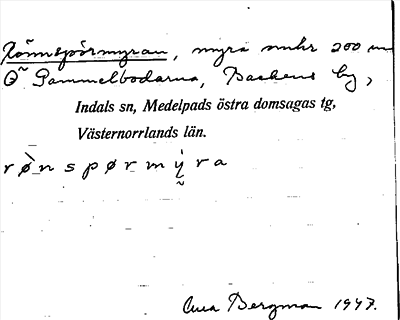 Rönnspörmyran, myra omkr 200 m
Ö Gammelbodarna, Backens by,
Indals sn, Medelpads östra domsagas tg,
Västernorrlands län.
rø̀nspørmý̰ra
Bergman 1947.